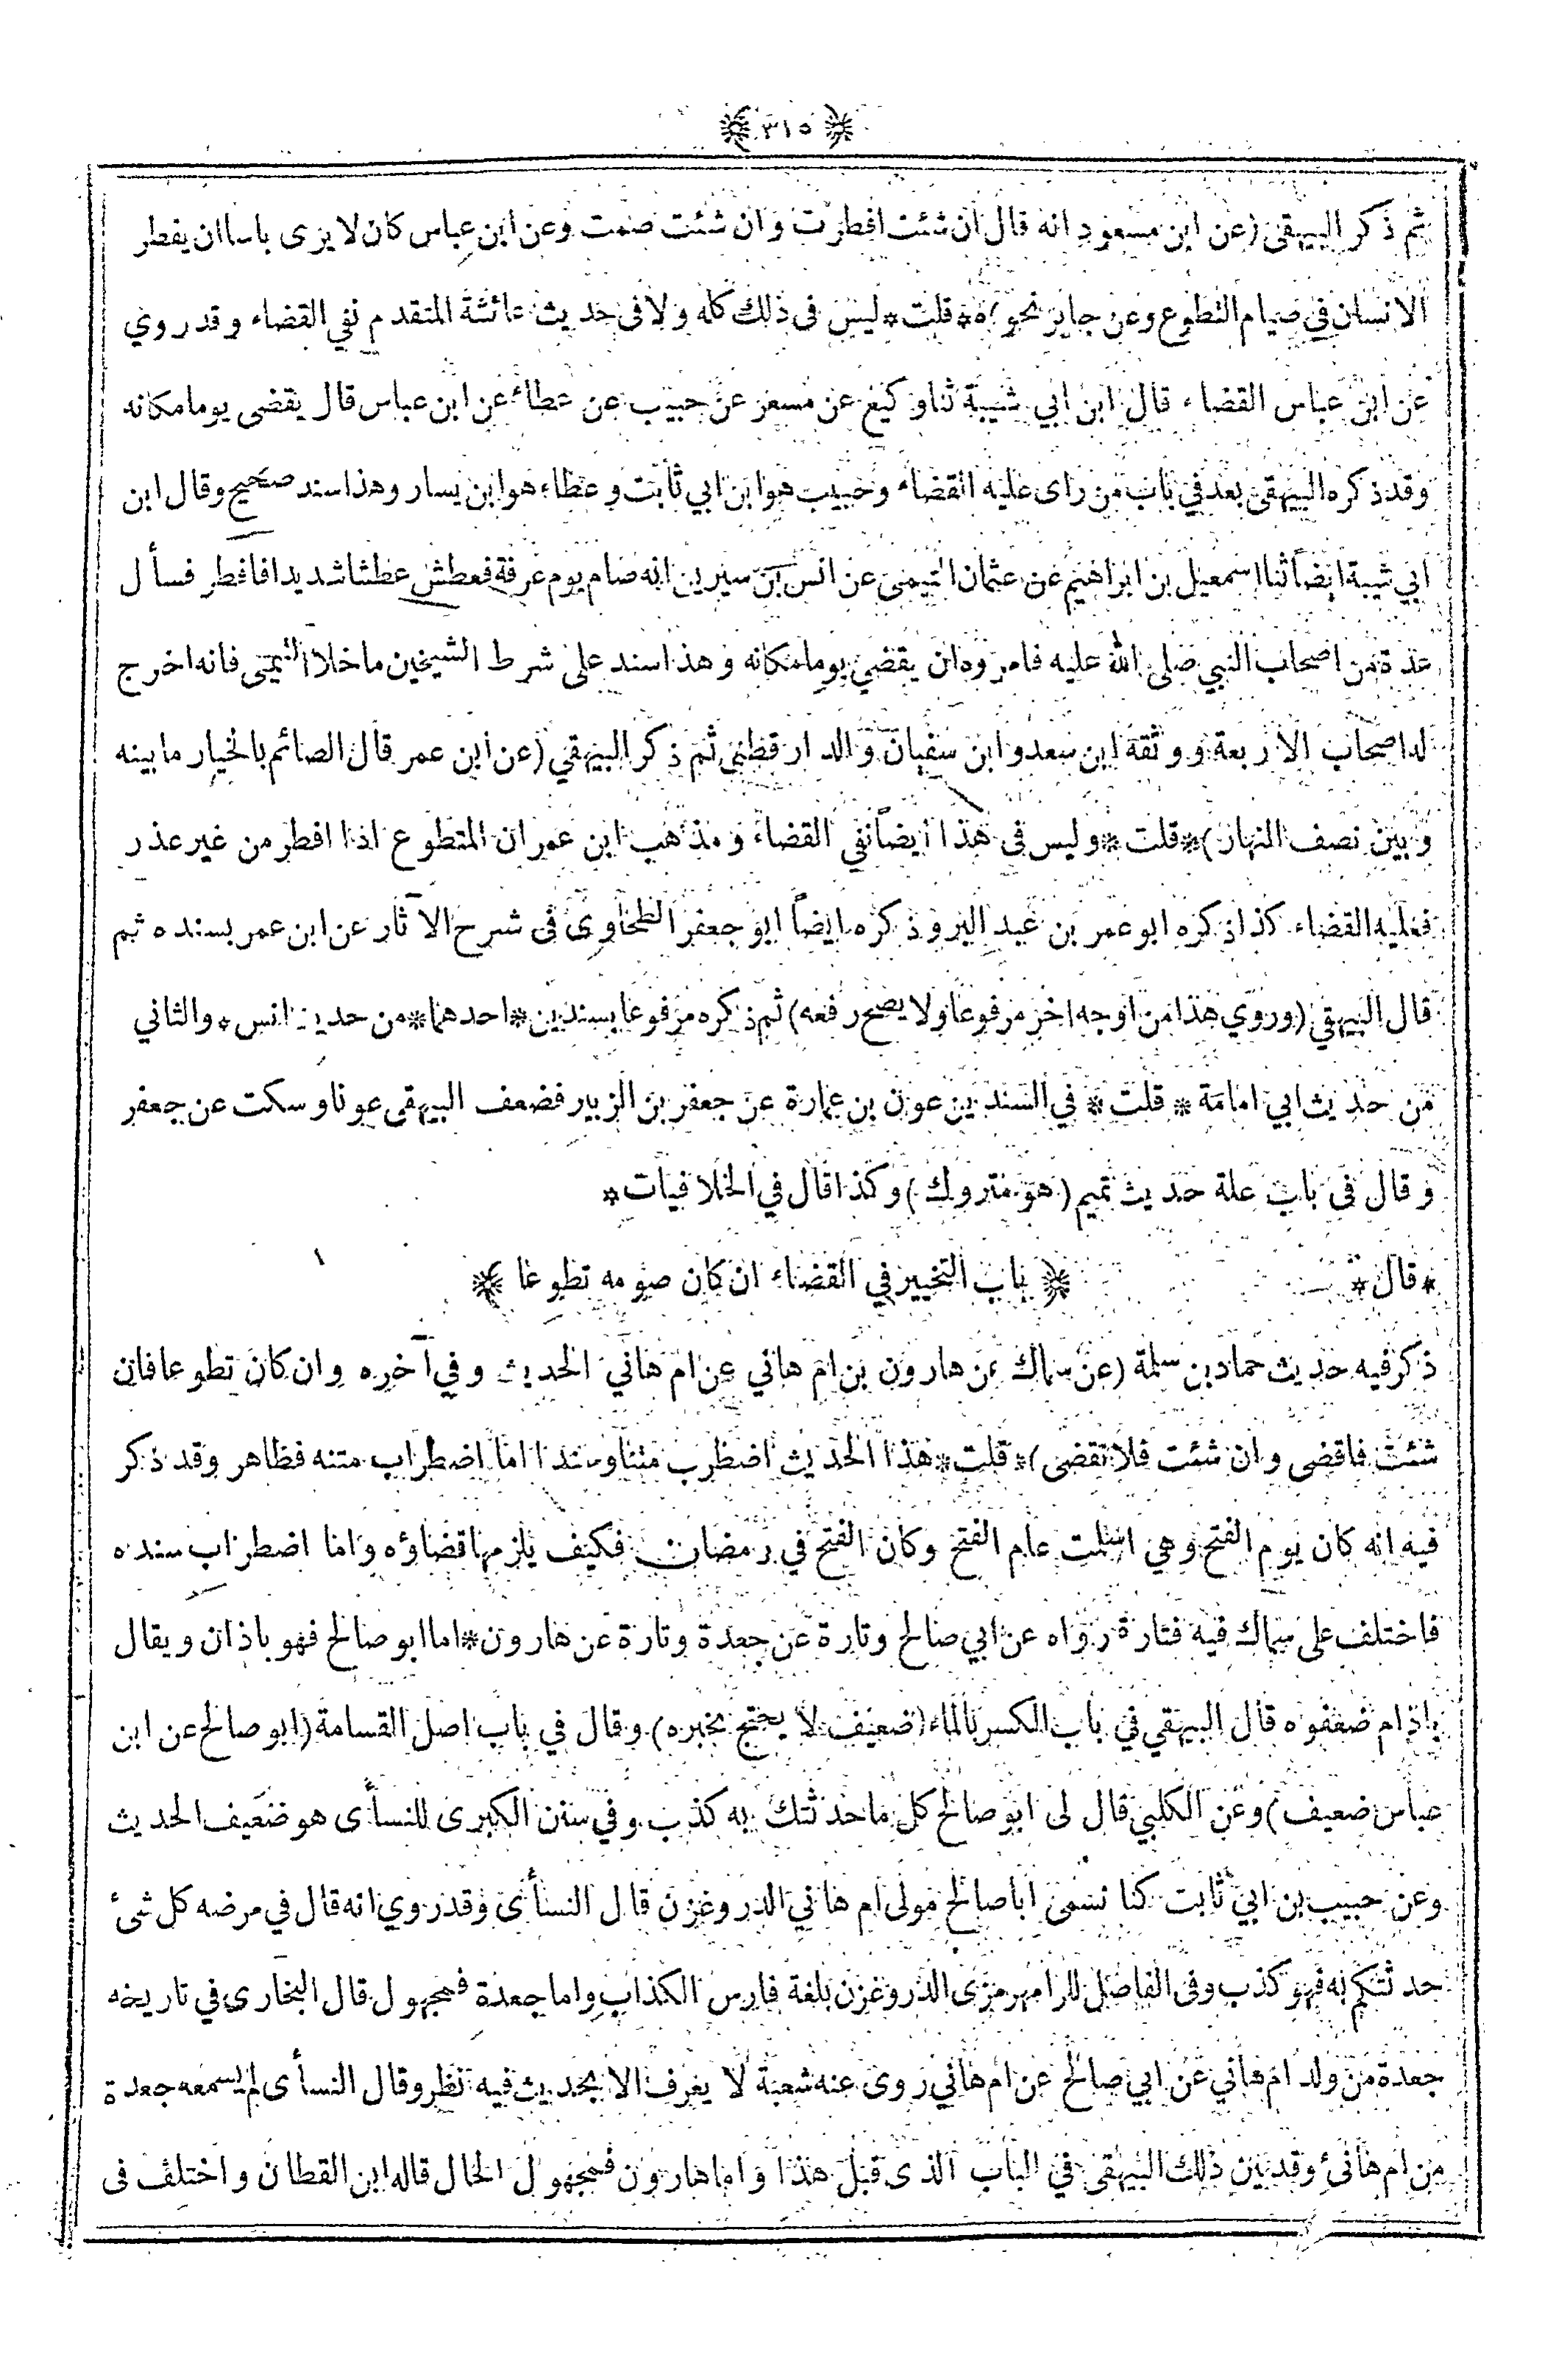 ﴿ ٣١٥ ﴾
ثم ذكر البيهقى (عن ابن مسعود انه قال ان شئت افطرت وان شئت صمت وعن ابن عباس كان لا يرى باسا ان يفطر
الانسان في صيام التطوع وعن جابر نحوه) * قلت * ليس فى ذلك كله ولا فى حديث عائشة المتقدم نفي القضاء وقد روي
عن ابن عباس القضاء قال ابن ابي شيبة ثنا وكيع عن مسعر عن حبيب عن عطاء عن ابن عباس قال يقضى يوما مكانه
وقد ذكره البيهقى بعد في باب من راى عليه القضاء وحبيب هو ابن ابي ثابت وعطاء هو ابن يسار وهذا سند صحيح وقال ابن
ابي شيبة ايضاً ثنا اسمعيل بن ابراهيم عن عثمان التيمى عن انس بن سيرين انه صام يوم عرفة فعطش عطشا شديدا فافطر فسأل
عدة من اصحاب النبي صلى الله عليه فامروه ان يقضي يوما مكانه وهذا سند على شرط الشيخين ما خلا التيمى فانه اخرج
له اصحاب الاربعة ووثقه ابن سعد وابن سفيان والدارقطنى ثم ذكر البيهقي (عن ابن عمر قال الصائم بالخيار ما بينه
وبين نصف النهار) * قلت * وليس فى هذا ايضاً نفي القضاء ومذهب ابن عمر ان المتطوع اذا افطر من غير عذر
فعليه القضاء كذا ذكره ابو عمر بن عبد البر وذكره ايضاً ابو جعفر الطحاوى فى شرح الآثار عن ابن عمر بسنده ثم
قال البيهقي (وروي هذا من اوجه اخر مرفوعا ولا يصح رفعه) ثم ذكره مرفوعا بسندين * احدهما * من حديث انس * والثاني
من حديث ابي امامة * قلت * في السندين عون بن عمارة عن جعفر بن الزبير فضعف البيهقى عونا وسكت عن جعفر
وقال فى باب علة حديث تميم (هو متروك) وكذا قال في الخلافيات *
* قال * ﴿ باب التخيير في القضاء ان كان صومه تطوعا ﴾
ذكر فيه حديث حماد بن سلمة (عن سماك عن هارون بن ام هاني عن ام هاني الحديث وفي آخره وان كان تطوعا فان
شئت فاقضى وان شئت فلا تقضى) * قلت * هذا الحديث اضطرب متنا وسندا اما اضطراب متنه فظاهر وقد ذكر
فيه انه كان يوم الفتح وهي اسلمت عام الفتح وكان الفتح في رمضان فكيف يلزمها قضاؤه واما اضطراب سنده
فاختلف على سماك فيه فتارة رواه عن ابي صالح وتارة عن جعدة وتارة عن هارون * اما ابو صالح فهو باذان ويقال
باذام ضعفوه قال البيهقي في باب الكسر بالماء (ضعيف لا يحتج بخبره) وقال في باب اصل القسامة (ابو صالح عن ابن
عباس ضعيف) وعن الكلبي قال لى ابو صالح كل ما حدثتك به كذب وفي سنن الكبرى للنسأى هو ضعيف الحديث
وعن حبيب بن ابي ثابت كنا نسمى ابا صالح مولى ام هاني الدروغزن قال النسأى وقد روي انه قال في مرضه كل شئ
حدثتكم به فهو كذب وفى الفاصل للرامهرمزى الدروغزن بلغة فارس الكذاب واما جعدة فمجهول قال البخارى في تاريخه
جعدة من ولد ام هاني عن ابي صالح عن ام هاني روى عنه شعبة لا يعرف الا بحديث فيه نظر وقال النسأى لم يسمعه جعدة
من ام هانئ وقد بين ذلك البيهقى في الباب الذى قبل هذا واما هارون فمجهول الحال قاله ابن القطان واختلف فى